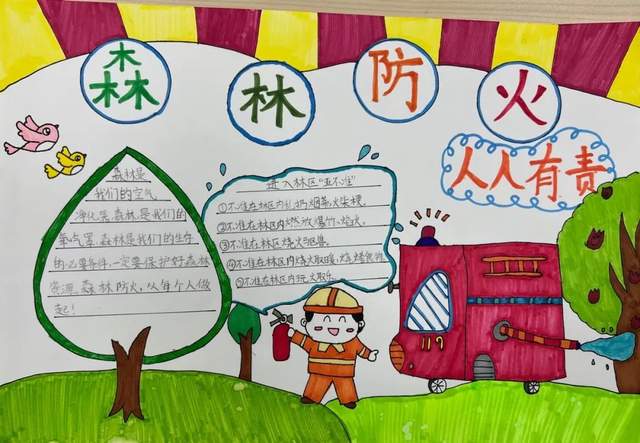 森林防火
人人有责
森林是
我们的空气
净化器,森林是我们的
氧气罩,森林是我们的生存
的必要条件,一定要保护好森林
资源,森林防火,从每个人做
起!
进入林区"五不准"
①不准在林区内乱扔烟蒂,火柴梗。
②不准在林区内燃放爆竹、焰火。
③不准在林区烧火驱兽。
④不准在林区内烧火取暖、烧烤食物
⑤不准在林区内玩火取乐。
119